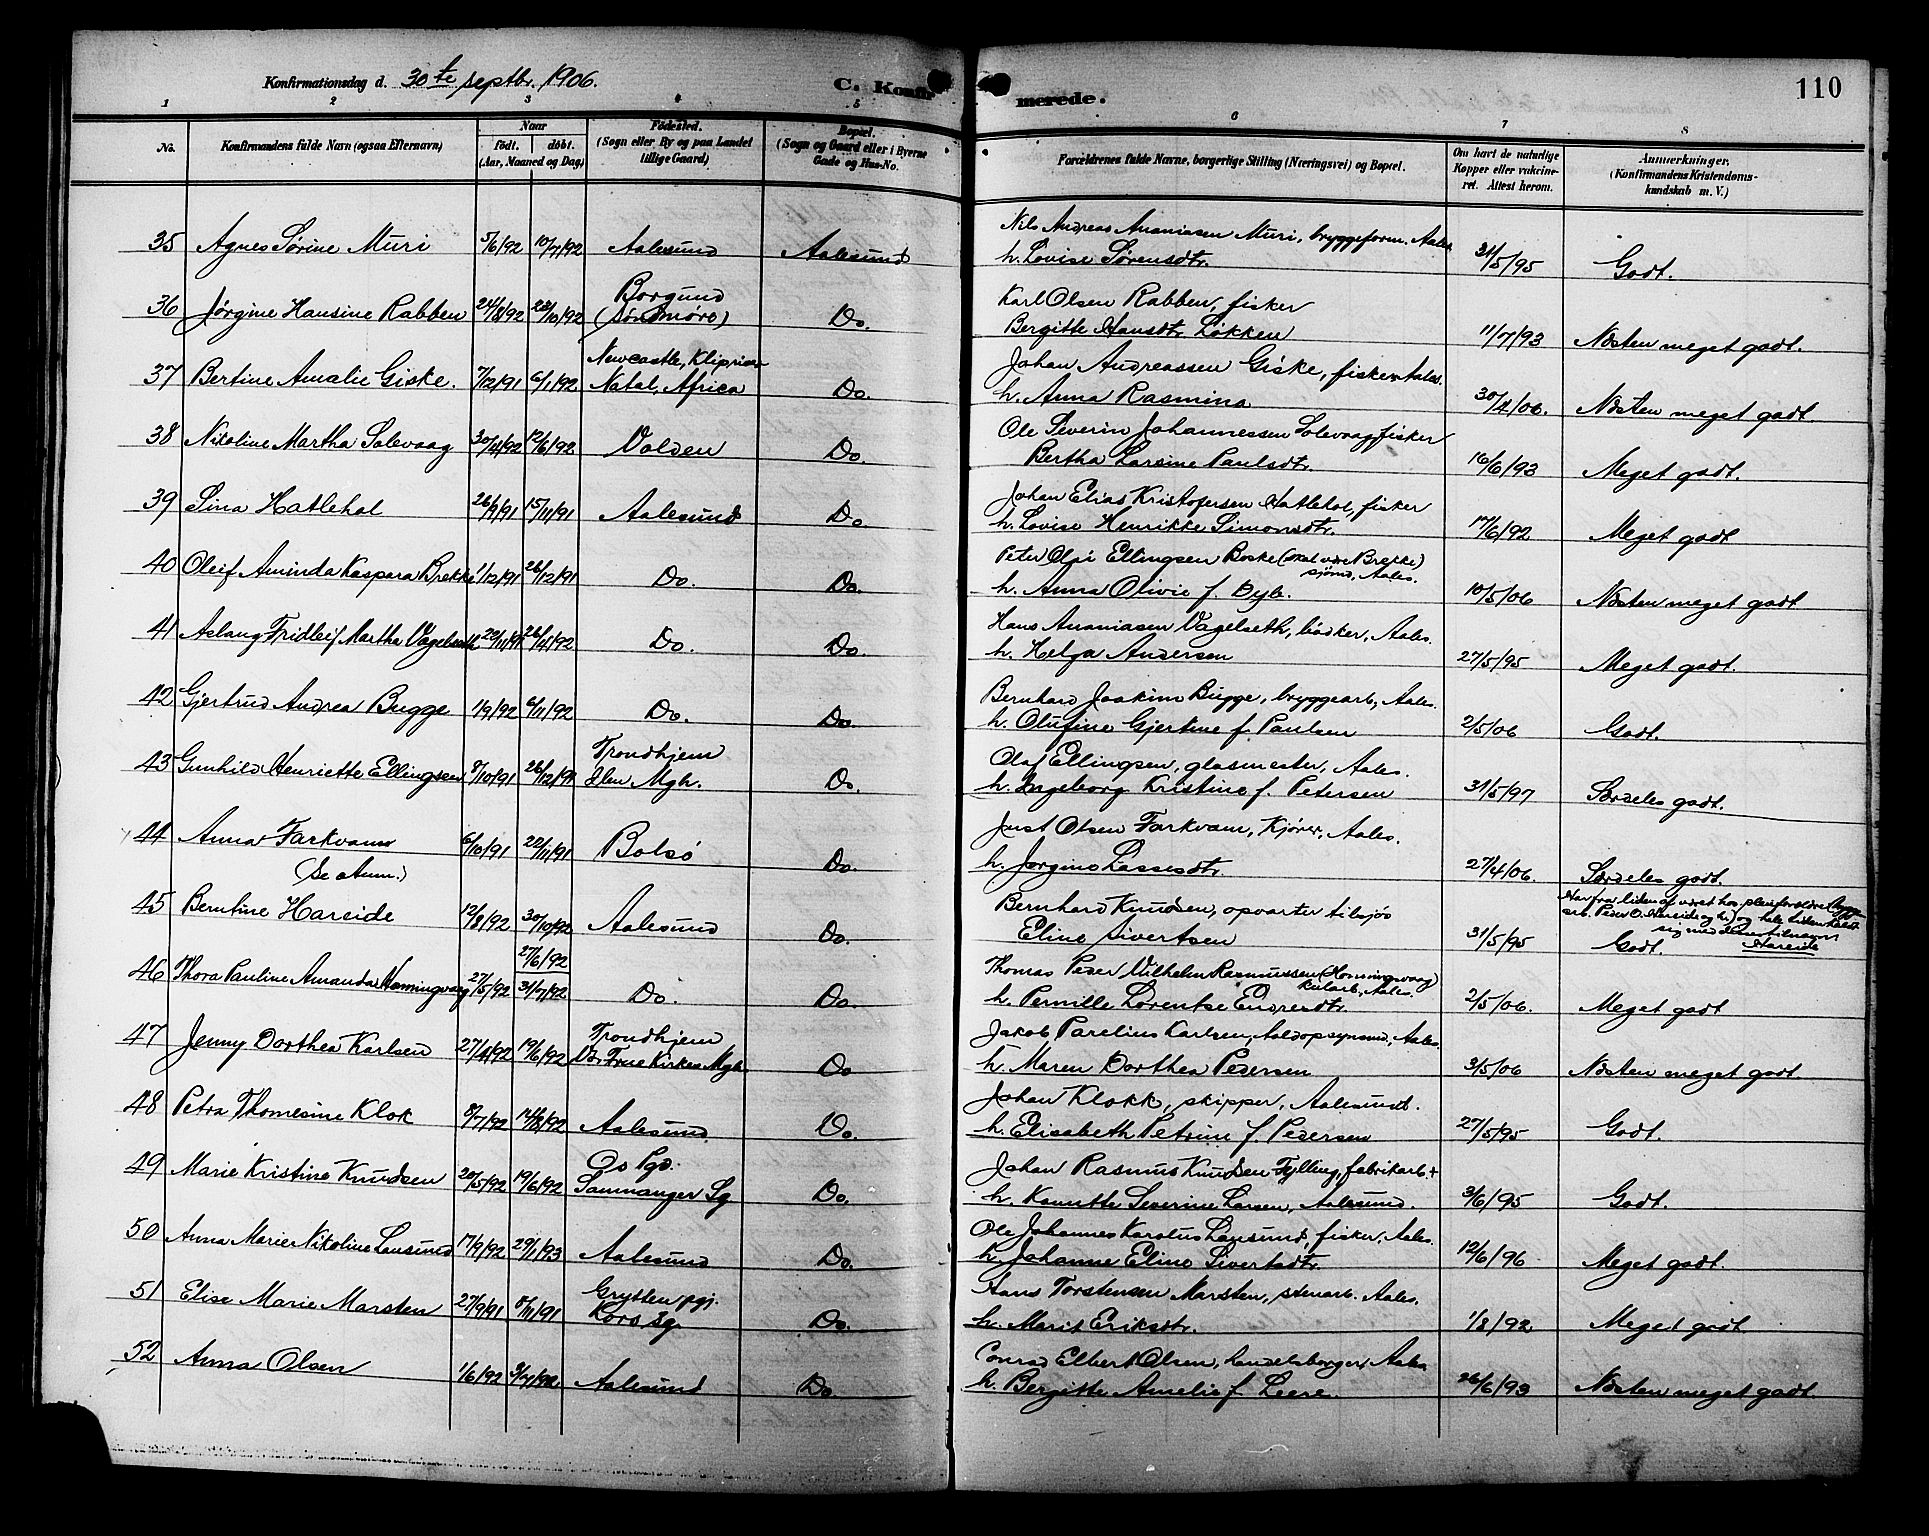 Konfirmationsdag d. 30te septbr. 1906.
C. Konfir
merede.
110
1 2 3 4 5 6 7 8
No. Konfirmandens fulde Navn (ogsaa Efternavn) Naar født. døbt. (Aar, Maaned og Dag) Fødested. (Sogn eller By og paa Landet tillige Gaard) Bopæl. (Sogn og Gaard eller i Byerne Gade og Hus-No. Forældrenes fulde Navne, borgerlige Stilling (Næringsvei) og Bopæl. Om havt de naturlige Kopper eller vakcineret. Attest herom. Anmerkninger. (Konfirmandens Kristendomskundskab m. V.)
Nils Andreas Ananiasen Muri, bryggeform. Aales.
35 Agnes Sørine Muri 5/6/92 10/7/92 Aalesund Aalesund h. Lovise Sørensdtr. 31/5/95 Godt.
Borgund Karl Olsen Rabben, fisker
36 Jørgine Hansine Rabben 24/8/92 23/10/92 (Søndmøre) Do. Bergitte Hansdtr. Løkken 11/7/93 Næsten meget godt.
Newcastle, Johan Andreassen Giske, fisker Aales.
37 Bertine Amalie Giske. 7/12/91 6/1/92 Natal, Africa Do. h. Anna Rasmina 30/4/06. Næsten meget godt.
Ole Severin Johannessen Solevaag, fisker
38 Nikoline Martha Solevaag 30/4/92 12/6/92 Volden Do. Bertha Larsine Paulsdtr. 16/6/93 Meget godt.
Johan Elias Kristofersen Hatlehol, fisker
39 Sina Hatlehol 26/9/91 15/11/91 Aalesund Do. h. Lovise Henrikke Simonsdtr. 17/6/92 Meget godt
Peter Olai Ellingsen Boske (skal være Brekke) sjømd, Aales.
40 Oleif Aminda Kaspara Brekke 1/12/91 26/12/91 Do. Do. h. Anna Olivie f. Dyb. 10/5/06 Næsten meget godt
Hans Ananiasen Vagelseth, bødker, Aales.
41 Aslaug Fridleif Martha Vagelseth 22/11/91 26/11/92 Do. Do. h. Helga Andersen 27/5/95 Meget godt.
Bernhard Joakim Bugge, bryggearb, Aales.
42 Gjertrud Andrea Bugge 1/9/92 6/11/92 Do. Do. h. Olufine Gjertine f. Paulsen 2/5/06 Godt.
Trondhjem Olaf Ellingsen, glasmester, Aales.
43 Gunhild Henriette Ellingsen 8/10/91 26/12/91 Ilen Mgh. Do. h. Ingeborg Kristine f. Petersen 31/5/97 Særdeles godt.
Just Olsen Farkvam, Kjører, Aales.
44 Anna Farkvam 6/10/91 22/11/91 Bolsø Do. h. Jørgine Lassesdtr 27/4/06. Særdeles godt.
(Se anm.)
Bernhard Knudsen, opvarter tilsjøs Har fra liden af været hos pleieforældre arb. Peder O. Hareide og h.) og hele tiden kaldt sig med dennes tilnavn Hareide
45 Berntine Hareide 12/8/92 30/10/92 Aalesund Do. Eline Sivertsen 31/5/95 Godt.
27/6/92 Thomas Peder Vilhelm Rasmussen (Honningsvaag) kularb, Aales.
46 Thora Pauline Amanda Honningsvaag 27/5/92 31/7/92 Do. Do. h. Pernille Lorentse Endresdtr. 2/5/06. Meget godt
Trondhjem Jakob Parelius Karlsen, Aales.
47 Jenny Dorthea Karlsen 27/4/92 19/6/92 V. Frue Kirkes Mgh. Do h. Maren Dorthea Pedersen 3/5/06 Næsten meget godt.
Johan Klokk, skipper, Aalesund.
48 Petra Thomesine Klok 8/7/92 14/8/92 Aalesund. Do. h. Elisabeth Petrine f. Pedersen 27/5/95 Godt.
Os Pgd. Johan Rasmus Knudsen Fylling, fabrikarb.
49 Marie Kristine Knudsen 20/5/92 19/6/92 Samnanger Sg Do. h. Kanutte Severine Larsen, Aalesund. 3/6/95 Godt.
Ole Johannes Karolus Lansund, fisker, Aales.
50 Anna Marie Nikoline Lansund 17/9/92 29/1/93 Aalesund Do. h. Johanne Eline Sivertsdtr. 12/6/96 Meget godt.
Grytten pgj. Hans Torstensen Marsten, stenarb. Aales.
51 Elise Marie Marsten 27/9/91 8/11/91 Kors Sg. Do. h. Marit Eriksdtr. 1/8/92 Meget godt
Conrad Elbert Olsen, handelsborger, Aales
52 Anna Olsen 1/6/92 3/7/92 Aalesund Do. h. Bergitte Amelie f. Leere. 26/6/93 Næsten meget godt.